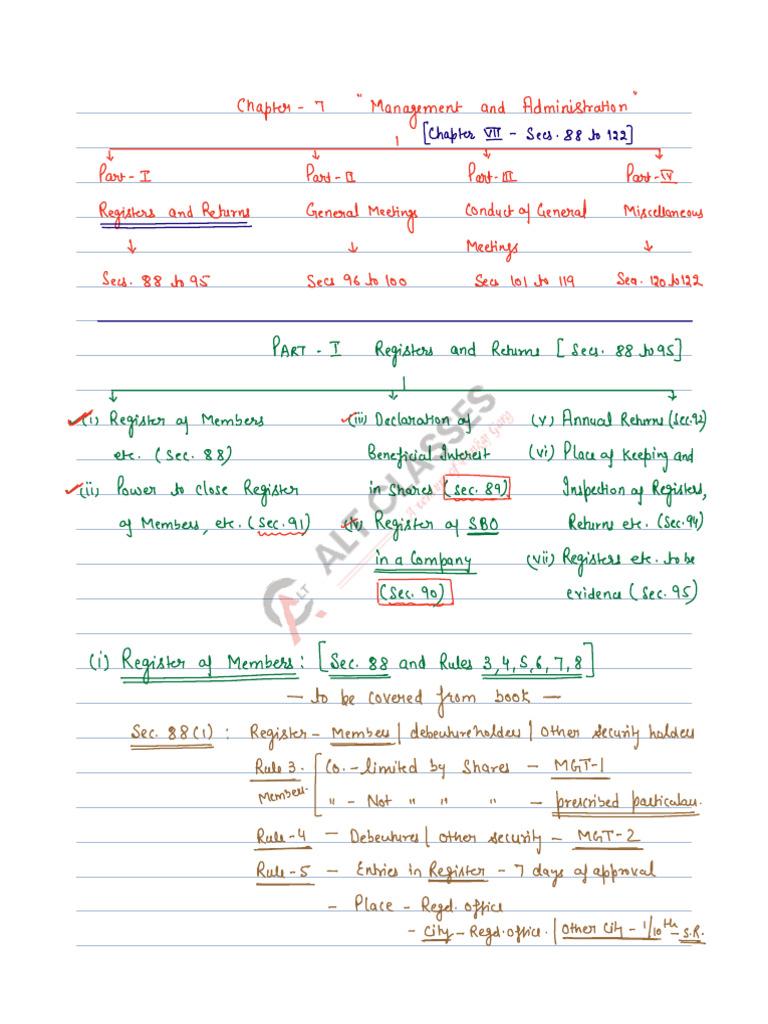 Chapter - 7 "Management and Administration"
[Chapter VII - Secs. 88 to 122]
Part-I Part-II Part-III Part-IV
Registers and Returns General Meetings Conduct of General Miscellaneous
Meetings
Secs. 88 to 95 Secs 96 to 100 Secs 101 to 119 Sec. 120 to 122
PART - I Registers and Returns [Secs. 88 to 95]
(i) Register of Members
etc. (Sec. 88)
(ii) Power to close Register
of Members, etc. (Sec. 91)
(iii) Declaration of
Beneficial Interest
in Shares (Sec. 89)
(iv) Register of SBO
in a Company
(Sec. 90)
(v) Annual Returns (Sec. 92)
(vi) Place of Keeping and
Inspection of Registers,
Returns etc. (Sec. 94)
(vii) Registers etc. to be
evidence (Sec. 95)
ALT CLASSES
ALT
(i) Register of Members: [Sec. 88 and Rules 3,4,5,6,7,8]
- to be covered from book -
Sec. 88(1): Register - Members | debentureholders | Other security holders
Rule 3. Co. - limited by Shares - MGT-1
Members. " - Not " " " - prescribed particulars.
Rule-4 - Debentures | other security - MGT-2
Rule-5 - Entries in Register - 7 days of approval
- Place - Regd. office
- City - Regd. office. | Other City - 1/10th - S.R.